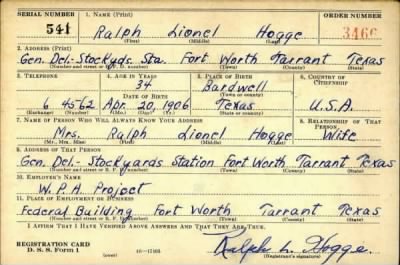 SERIAL NUMBER 1. NAME (Print) ORDER NUMBER
541 Ralph Lionel Hogge 3466
(First) (Middle) (Last)
2. ADDRESS (Print)
Gen. Del.- Stockyds. Sta. Fort Worth Tarrant Texas
(Number and street or R. F. D. number) (Town) (County) (State)
3. TELEPHONE 4. AGE IN YEARS 5. PLACE OF BIRTH 6. COUNTRY OF CITIZENSHIP
34 Bardwell
DATE OF BIRTH (Town or county)
6 4562 Apr. 20, 1906 Texas U.S.A.
(Exchange) (Number) (Mo.) (Day) (Yr.) (State or country)
7. NAME OF PERSON WHO WILL ALWAYS KNOW YOUR ADDRESS 8. RELATIONSHIP OF THAT PERSON
Mrs. Ralph Lionel Hogge Wife
(Mr., Mrs., Miss) (First) (Middle) (Last)
9. ADDRESS OF THAT PERSON
Gen. Del.- Stockyards Station Fort Worth Tarrant Texas
(Number and street or R. F. D. number) (Town) (County) (State)
10. EMPLOYER'S NAME
W.P.A. Project
11. PLACE OF EMPLOYMENT OR BUSINESS
Federal Building Fort Worth Tarrant Texas
(Number and street or R. F. D. number) (Town) (County) (State)
I AFFIRM THAT I HAVE VERIFIED ABOVE ANSWERS AND THAT THEY ARE TRUE.
REGISTRATION CARD
D. S. S. Form 1 (over) Ralph L. Hogge